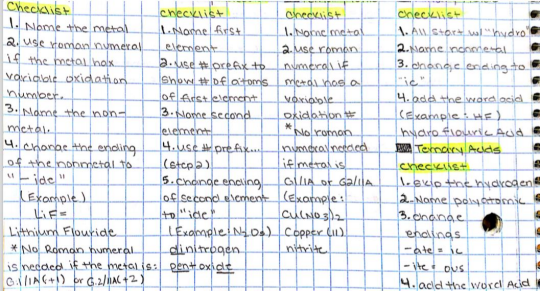 Checklist
1. Name the metal
2. use roman numeral
if the metal has
variable oxidation
number.
3. Name the non-
metal.
4. change the ending
of the nonmetal to
"-ide"
(Example)
LiF =
Lithium Flouride
*No Roman numeral
is needed if the metal is:
G.1/1A(+1) or G.2/11A(+2)
checklist
1. Name first
element
2. use # prefix to
show # of atoms
of first element
3. Name second
element
4. use # prefix...
(step 2)
5. change ending
of second element
to "ide"
(Example: N2O5)
dinitrogen
pentoxide
checklist
1. Name metal
2. use roman
numeral if
metal has a
variable
oxidation #
*No roman
numeral needed
if metal is
G1/1A or G2/11A
(Example:
Cu(NO3)2
Copper (11)
nitrite
checklist
1. All start w/ "hydro"
2. Name nonmetal
3. change ending to
"ic"
4. add the word acid
(Example: HF)
hydroflouric Acid
Ternary Acids
checklist
1. skip the hydrogen
2. Name polyatomic
3. change
endings
-ate = ic
-ite = ous
4. add the word Acid